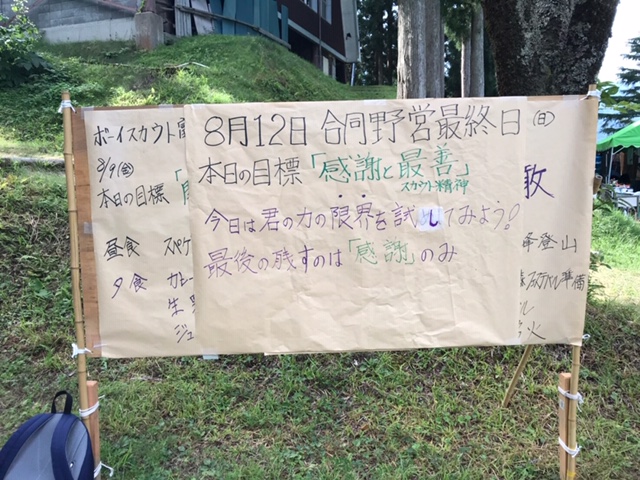 8月12日 合同野営最終日(日)
本日の目標「感謝と最善」
スカウト精神
今日は君の力の限界を試してみよう!
最後の残すのは「感謝」のみ
ボーイスカウト
8/9(金)
本日の目標「
昼食 スペ
夕食 カレー
ジュ
登山
準備
ル
火